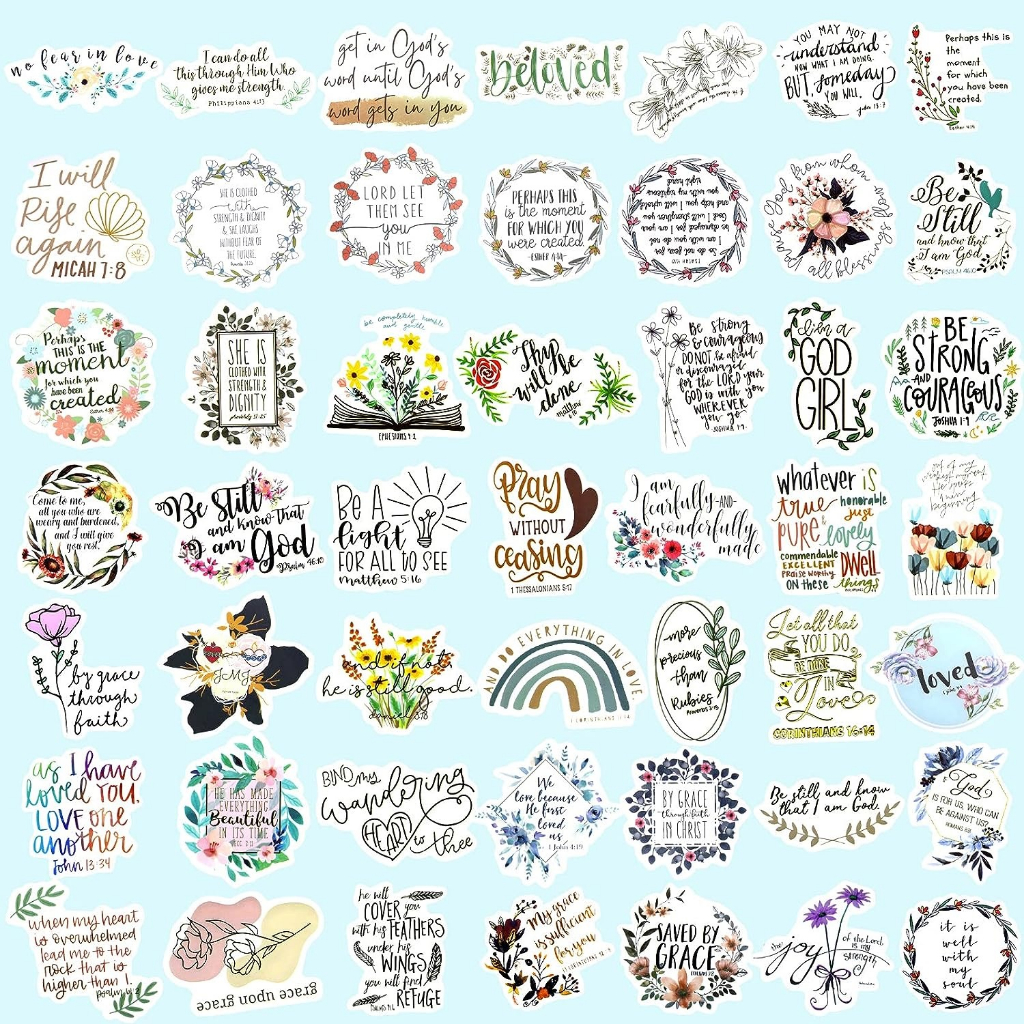 no fear in love
I can do all
this through Him Who
gives me strength.
Philippians 4:13
get in God's
word until God's
word gets in you
beloved
YOU MAY NOT
understand
NOW WHAT I AM DOING,
BUT, someday
YOU WILL.
John 13:7
Perhaps this is
the
moment
for which
you have been
created.
Esther 4:14
I will
Rise
again
MICAH 7:8
SHE IS CLOTHED
with
STRENGTH & DIGNITY
& SHE LAUGHS
WITHOUT FEAR OF
THE FUTURE.
LORD LET
THEM SEE
you
IN ME
PERHAPS THIS
is the moment
FOR WHICH YOU
were created
- ESTHER 4:14 -
So do not fear,
for I am with you
do not
be dismayed, for I am your
God. I will strengthen you
and help you I will uphold
you with my righteous
right hand
Praise God from whom all blessings
Be
Still
and know that
I am God
PSALM 46:10
Perhaps
THIS IS THE
moment
for which you
have been
created
Esther 4:14
SHE IS
CLOTHED WITH
STRENGTH &
DIGNITY
proverbs 31:25
be completely humble
and gentle
EPHESIANS 4:2
Thy
will be
done
matthew
6:10
Be strong
& courageous
DO NOT be afraid
or discouraged
for the LORD your
GOD is with you
WHEREVER
you go
JOSHUA 1:9
i'm a
GOD
GIRL
BE
STRONG
AND
COURAGEOUS
JOSHUA 1:9
Come to me,
all you who are
weary and burdened,
and I will give
you rest.
Be Still
and know that
I am God
Psalm 46:10
Be A
light
FOR ALL TO SEE
Matthew 5:16
Pray
WITHOUT
ceasing
1 THESSALONIANS 5:17
I am
fearfully -AND-
wonderfully
made
whatever is
true honorable
just
PURE & lovely
commendable
EXCELLENT
PRAISE WORTHY DWELL
ON THESE things
by grace
through
faith
JMJ
and if not,
he is still good.
daniel 3:18
AND DO EVERYTHING IN LOVE
1 CORINTHIANS 16:14
more
precious
than
Rubies
Proverbs 3:15
Let all that
YOU DO
BE DONE
IN
Love
CORINTHIANS 16:14
loved
as I have
loved you,
LOVE one
another
John 13:34
HE HAS MADE
EVERYTHING
Beautiful
IN ITS TIME
ECC 3:11
BIND my
wandering
HEART to thee
We
love because
He first
loved
us
1 John 4:19
BY GRACE
through faith
IN CHRIST
Be still and know
that I am God.
If
God
IS FOR US, WHO CAN
BE AGAINST US?
ROMANS 8:31
when my heart
is overwhelmed
lead me to the
Rock that is
higher than I.
Psalm 61:2
grace upon grace
he will
COVER you
with his FEATHERS
under his
WINGS
you will find
REFUGE
My grace
is sufficient
for you
SAVED BY
GRACE
the joy of the Lord
is my
strength
it is
well
with
my
soul